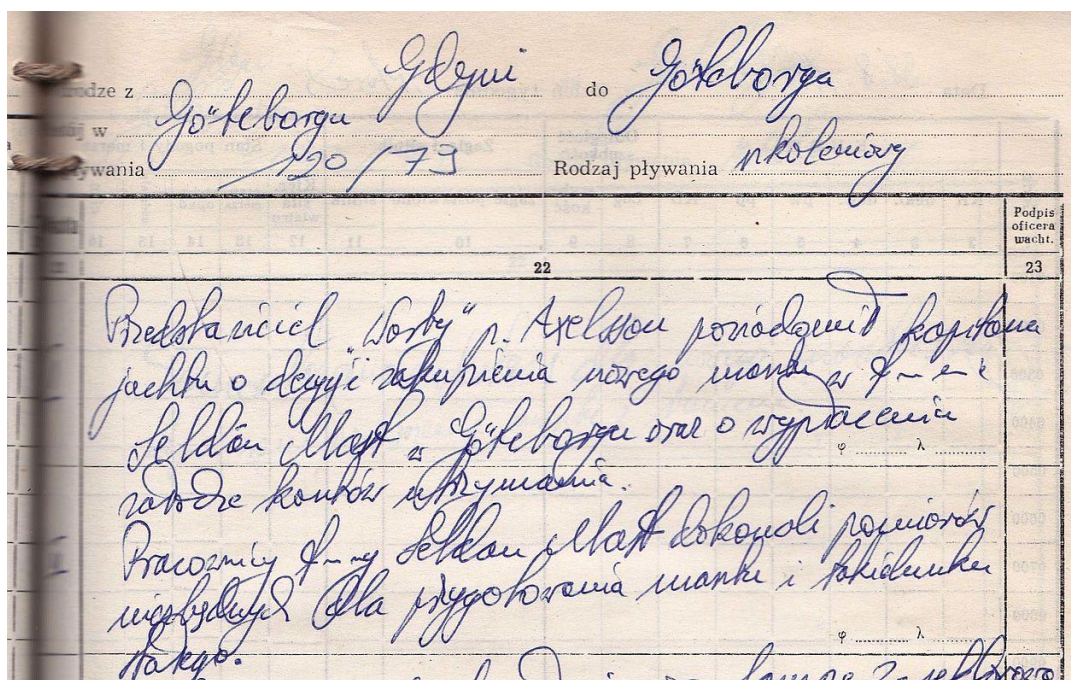 Gdyni
odze z do Göteborga
j w Göteborgu
ywania 120/79 Rodzaj pływania szkoleniowy
Podpis
oficera
wacht.
22 23
Przedstawiciel „Warty” p. Axelsson powiadomił kapitana
jachtu o decyzji zakupienia nowego masztu w f-mie
Selden Mast w Göteborgu oraz o wypłacenia
załodze kosztów utrzymania.
φ λ
Pracownicy f-my Selden Mast dokonali pomiarów
niezbędnych dla przygotowania masztu i takielunku
stałego.
φ λ